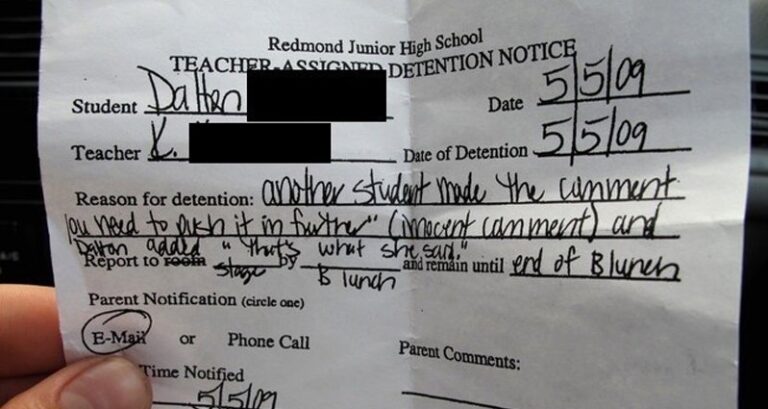 Redmond Junior High School
TEACHER-ASSIGNED DETENTION NOTICE
Student Dalton Date 5/5/09
Teacher K. Date of Detention 5/5/09
Reason for detention: another student made the comment
"you need to push it in further" (innocent comment) and
Dalton added "that's what she said."
Report to room stage by B lunch and remain until end of B lunch
Parent Notification (circle one)
E-Mail or Phone Call Parent Comments:
Time Notified
5/5/09